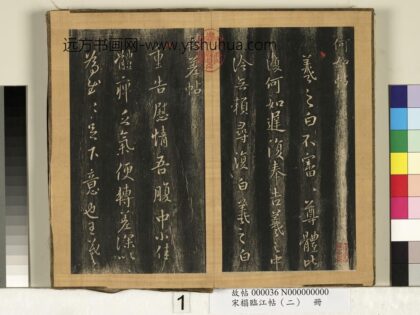 远方书画网-www.yfshuhua.com
何如帖
羲之白不審尊體比
復何如遲復奉告羲之中
冷無賴尋復白羲之白
差帖
重告慰情吾腹中小佳
體痺乏氣便轉差深以
為慰
下意也王羲
1
故帖 000036 N000000000
宋榻臨江帖（二） 冊